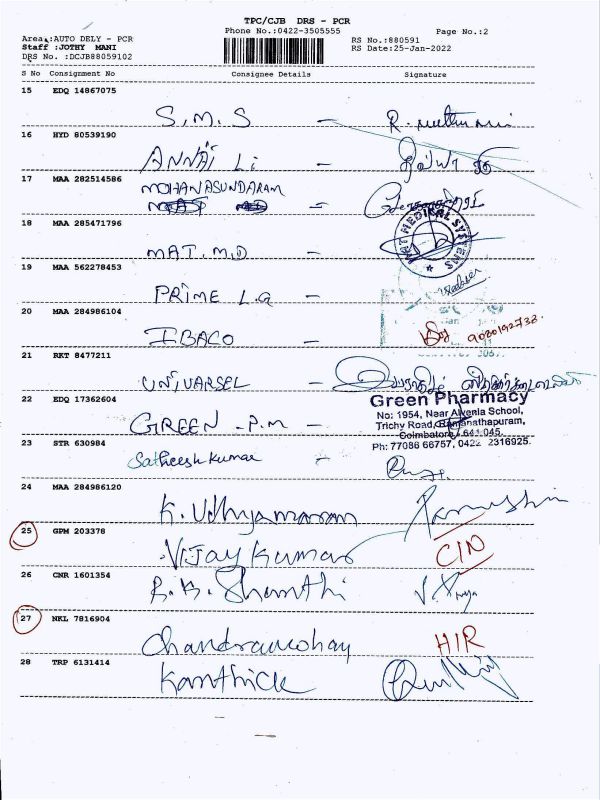 TPC/CJB DRS - PCR
Phone No.:0422-3505555
Page No.:2
Area :AUTO DELY - PCR
RS No.:880591
Staff :JOTHY MANI
RS Date:25-Jan-2022
DRS No. :DCJB88059102
S No Consignment No Consignee Details Signature
15 EDQ 14867075
S.M.S -
16 HYD 80539190
ANNAI Li -
17 MAA 282514586
MOHANASUNDARAM
-
18 MAA 285471796
MAT. M.D -
MAT MEDICAL SYSTEMS
19 MAA 562278453
PRIME L.G -
20 MAA 284986104
IBACO -
21 RKT 8477211
UNIVARSEL -
22 EDQ 17362604
GREEN - P.M -
Green Pharmacy
No: 1954, Near Alvenia School,
Trichy Road, Ramanathapuram,
Coimbatore - 641 045.
Ph: 77086 66757, 0422 2316925.
23 STR 630984
Satheesh kumar -
24 MAA 284986120
K. Udhyamaram
25 GPM 203378
Vijay Kumar CIN
26 CNR 1601354
R.K. Shanthi
27 NKL 7816904
Chandramohay HIR
28 TRP 6131414
Kanthick